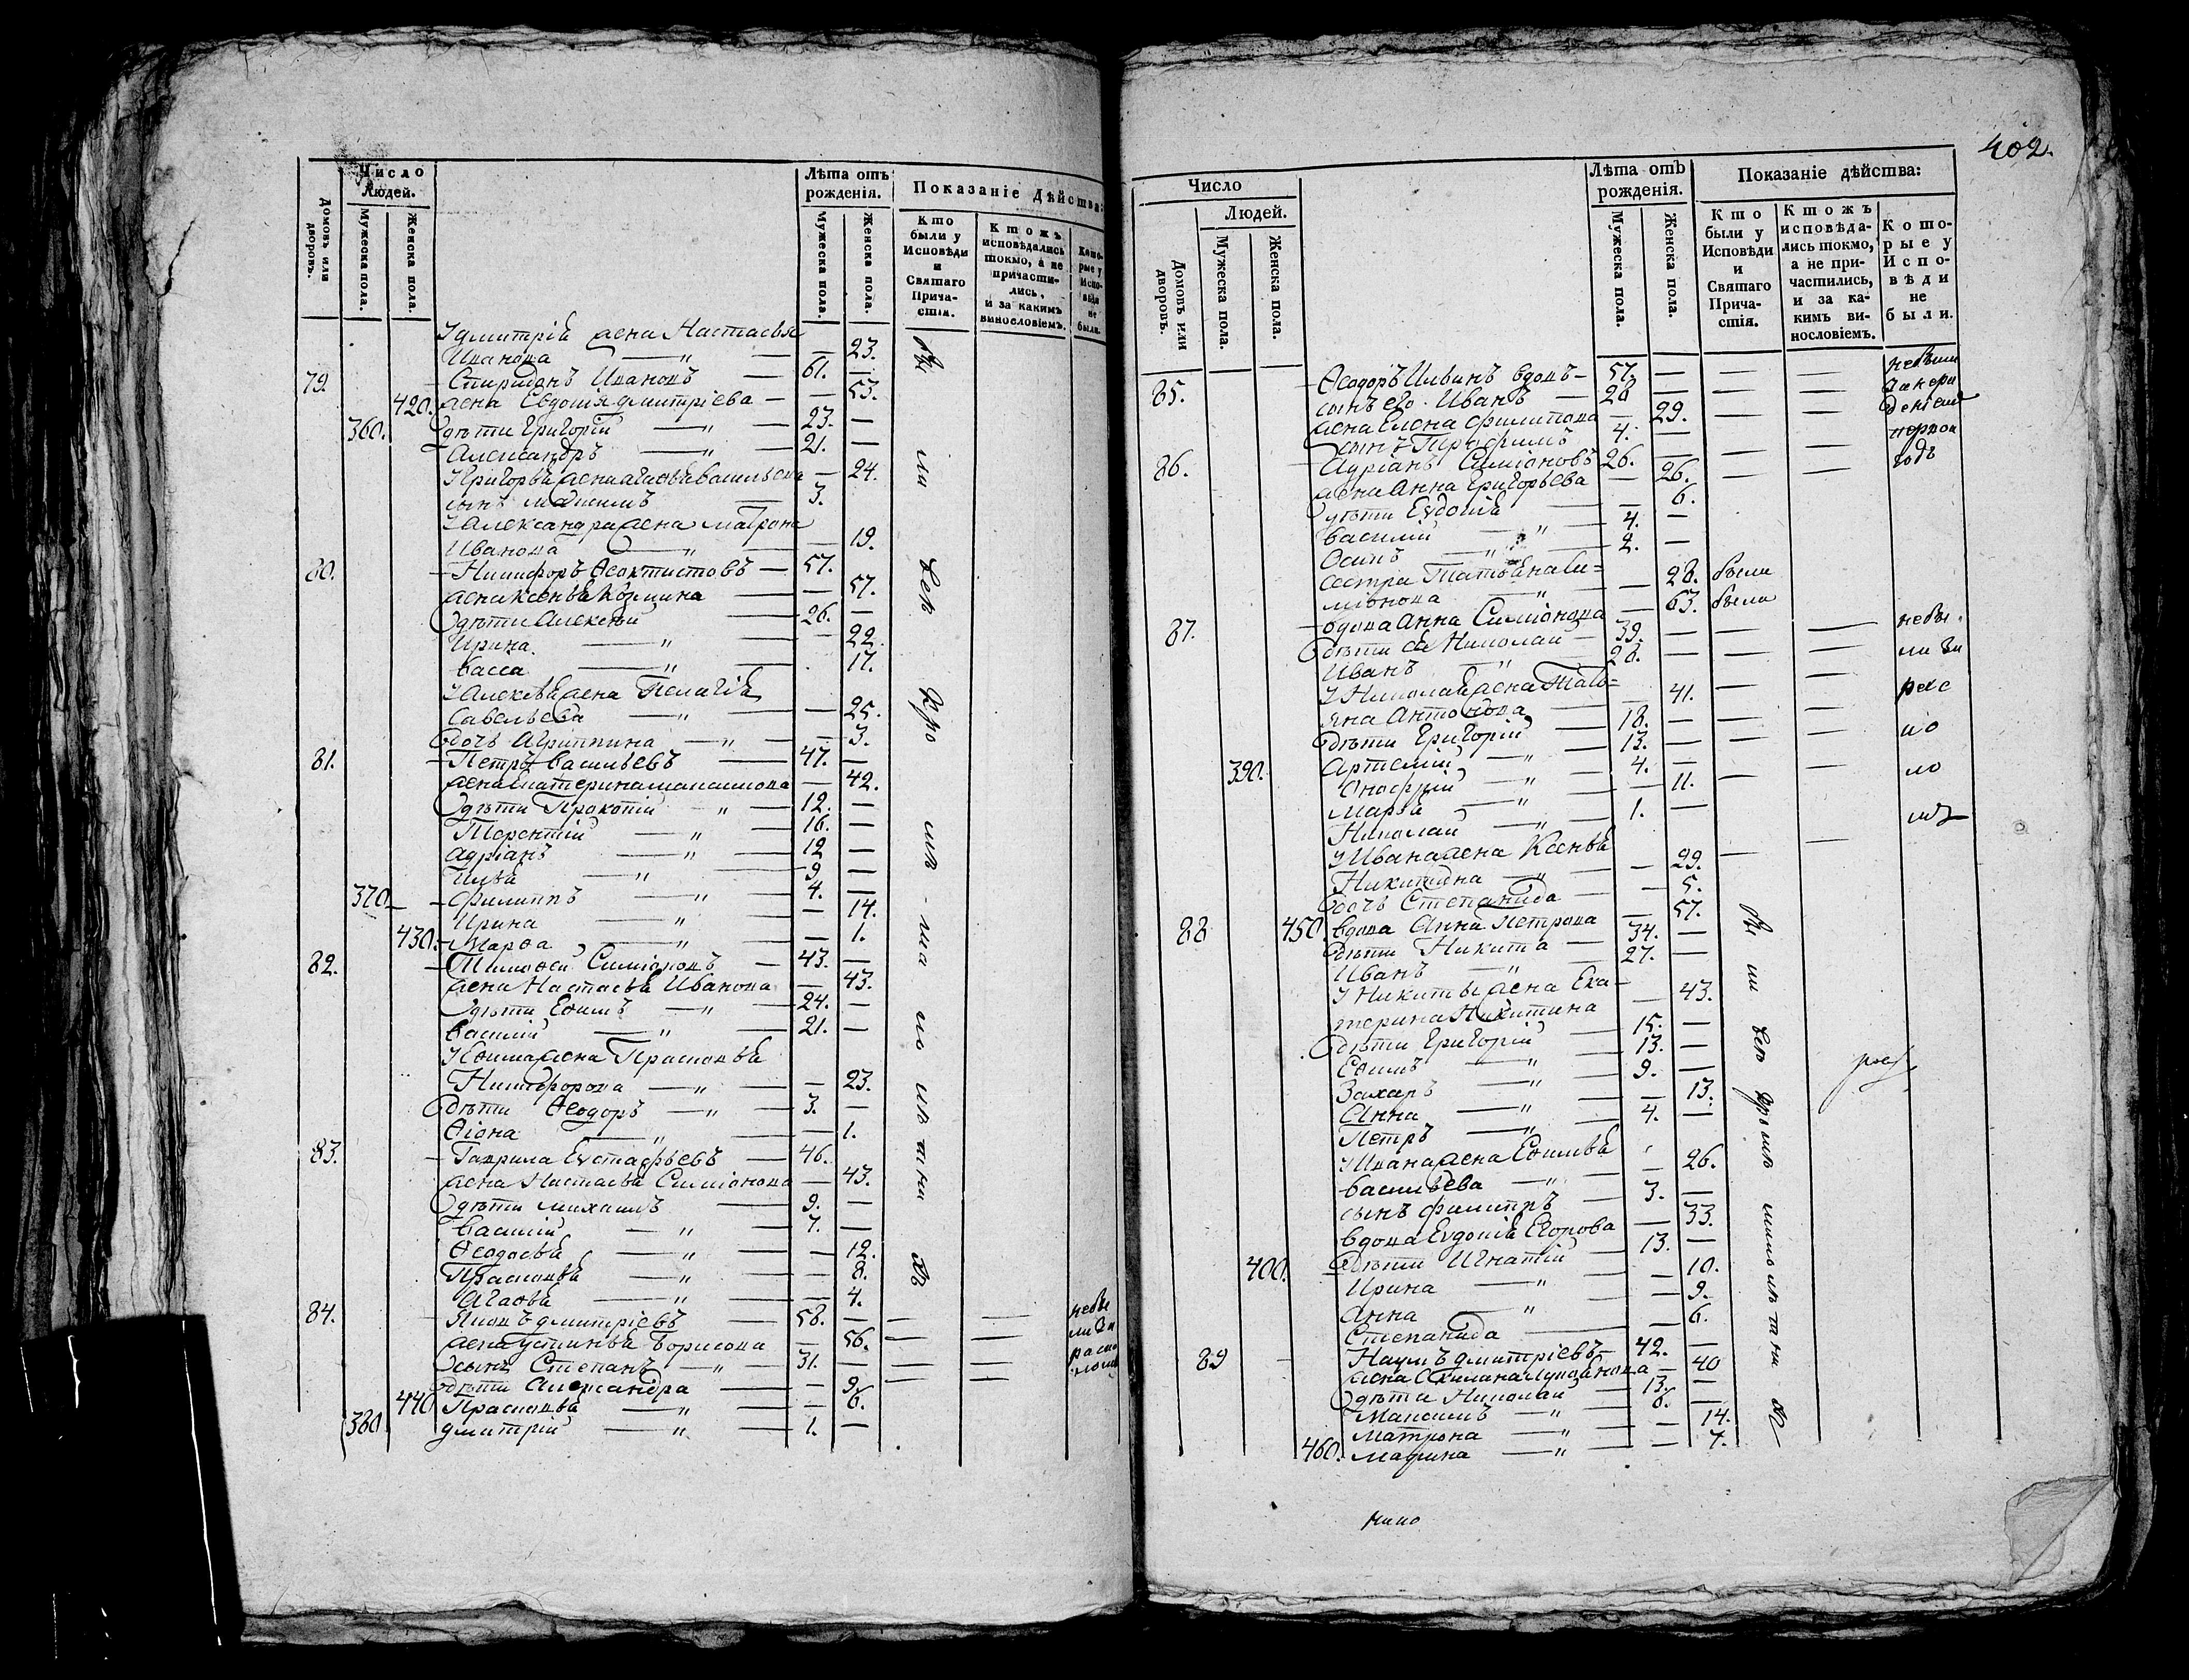 Число Людей.
Лѣта отъ рожденія.
Показаніе Дѣйства:
Домовъ или дворовъ.
Мужеска пола.
Женска пола.
Мужеска пола.
Женска пола.
Кто были у Исповѣди и Святаго Причастія.
Ктожъ исповѣдались токмо, а не причастились, и за какимъ винословіемъ.
Которые у Исповѣди не были.
У дмитрія жена Настасья
Иванова — 23.
79. Спиридонъ Ивановъ — 61. —
420. жена Евдотія дмитріева — 53.
360. дѣти Григорій — 23. —
Александръ — 21. —
У Григорья жена Васильева — 24.
сынъ Максимъ — 3.
У Александра жена Матрона
Иванова — 19.
80. Никифоръ Ѳеоктистовъ — 57.
жена Ксенья — 57.
дѣти Алексѣй — 26. —
Ирина — 22.
Васса — 17.
У Алексѣя жена Пелагія
Савельева — 25.
дочь Агрипина — 3.
81. Петръ Васильевъ — 47. —
жена Екатерина — 42.
дѣти Прокопій — 12. —
Терентій — 16. —
Адріанъ — 12 —
Илья — 9 —
370. Филиппъ — 4. —
Ирина — 14.
430. Марѳа — 1.
82. Тимоѳей Симіоновъ — 43. —
жена Настасья Иванова — 43.
дѣти Ефимъ — 24. —
Василій — 21. —
У Ефима жена Прасковья
Никифорова — 23.
дѣти Ѳеодоръ — 3. —
Ѳіона — 1.
83. Гаврила Евстафьевъ — 46.
жена Настасья Симіонова — 43.
дѣти Михаилъ — 9. —
Василій — 7. —
Ѳеодосья — 12.
Прасковья — 8.
Агаѳья — 4.
84. Яковъ дмитріевъ — 58. —
жена Устинья Борисова — 56.
сынъ Степанъ — 31. —
дѣти Александра — 9.
440 Прасковья — 6.
380 дмитрій — 1. —
402.
Число
Людей.
Лѣта отъ рожденія.
Показаніе дѣйства:
Домовъ или дворовъ.
Мужеска пола.
Женска пола.
Мужеска пола.
Женска пола.
Кто были у Исповѣди и Святаго Причастія.
Ктожъ исповѣдались токмо, а не причастились, и за какимъ винословіемъ.
Которые у Исповѣди не были.
85. Ѳеодоръ Ильинъ вдовъ — 57. —
сынъ его Иванъ — 28 —
жена Елена Филипова — 29.
сынъ Трофимъ — 4. —
86. Адріанъ Симіоновъ 26. —
жена Анна Григорьева — 26.
дѣти Евдокія — 6.
Василій — 4. —
Осипъ — 2. —
сестра Татьяна Си=
міонова — 28. была
87. вдова Анна Симіонова — 63. была
дѣти ея Николай — 39. —
Иванъ — 28. —
У Николая жена Тать=
яна Антонова — 41.
дѣти Григорій — 18. —
Артемій — 13. —
390. Онофрій — 4. —
Марья — 11.
Николай — 1. —
У Ивана жена Ксенья
Никитина — 29.
дочь Степанида — 5.
88 450. вдова Анна Петрова — 57.
дѣти Никита — 34. —
Иванъ — 27. —
У Никиты жена Ека-
терина Никитина — 43.
дѣти Григорій — 15. —
Ефимъ — 13. —
Захаръ — 9. —
Анна — 13.
Петръ — 4. —
У Ивана жена Ефимья
Васильева — 26.
сынъ Филиппъ — 3. —
вдова Евдокія Егорова — 33.
400. дѣти Игнатій — 13. —
Ирина — 10.
Анна — 9.
Степанида — 6.
89 Наумъ дмитріевъ — 42. —
жена — 40
дѣти Николай — 13. —
Максимъ — 6. —
Матрона — 14.
460. Марина — 7.